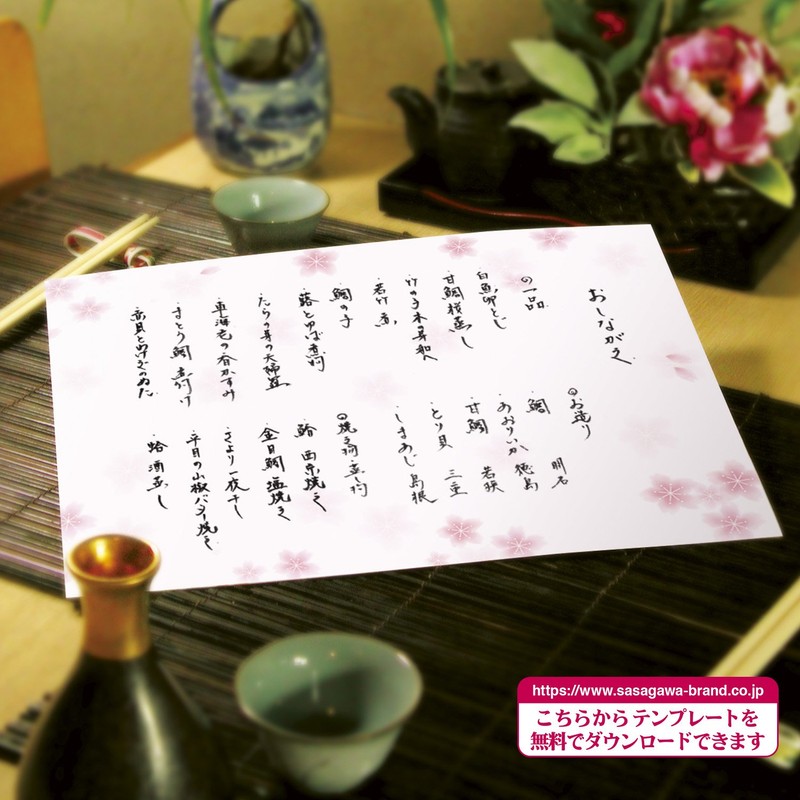 おしながき
◎一品
・白魚卵とじ
・甘鯛桜蒸し
・竹の子木の芽和へ
・若竹煮
・鯛の子
・蕗とゆば煮物
・たらの芽の天婦羅
・車海老の春がすみ
・さとう鯛煮付け
・青貝とぬげぎのぬた
◎お造り
・鯛 明石
・あおりいか 徳島
・甘鯛 若狭
・とり貝 三重
・しまあじ 島根
◎焼き物・蒸し物
・鰆 西京焼き
・金目鯛 塩焼き
・さより一夜干し
・平目の山椒バター焼き
・蛤酒蒸し
https://www.sasagawa-brand.co.jp
こちらからテンプレートを
無料でダウンロードできます